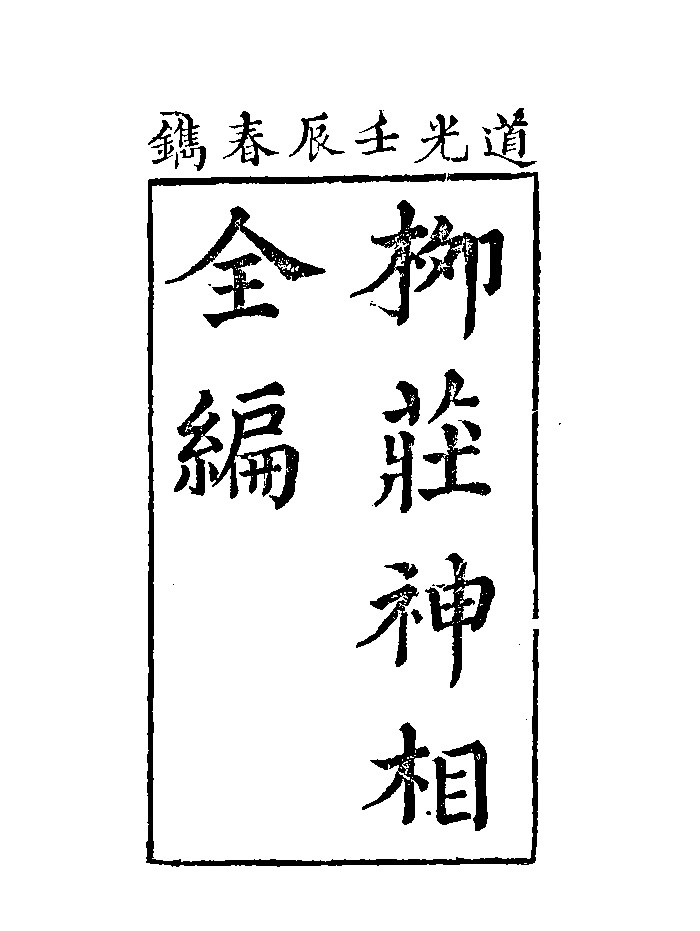 道光壬辰春鐫
柳莊神相
全編